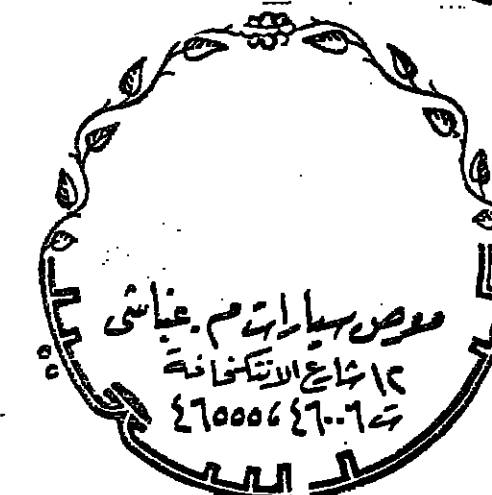 معرض سيارات م. عباشى
١٢ شارع الانتكخانة
ت ٤٦٠٠٦ ٤٦٥٥٥٤